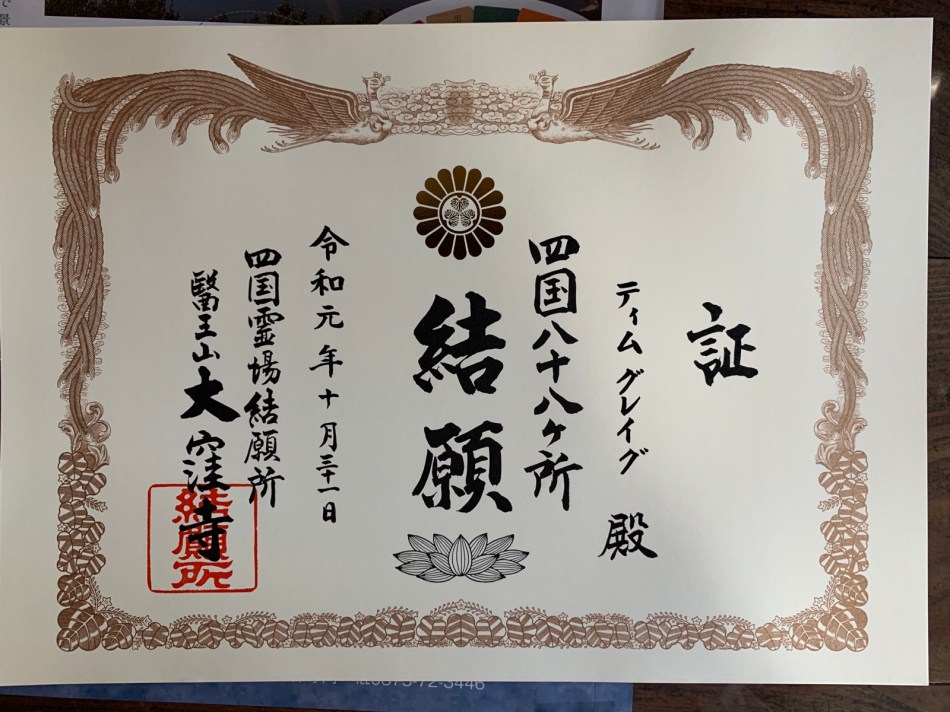 証
ティム グレイグ 殿
四国八十八ヶ所
結願
令和元年十月三十一日
四国霊場結願所
醫王山大窪寺
結願所
0875-72-3446